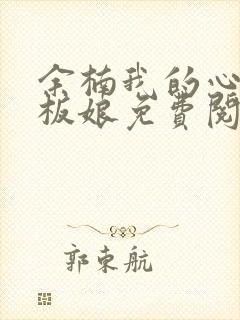 余楠我的心
板娘免費閱
郭東航